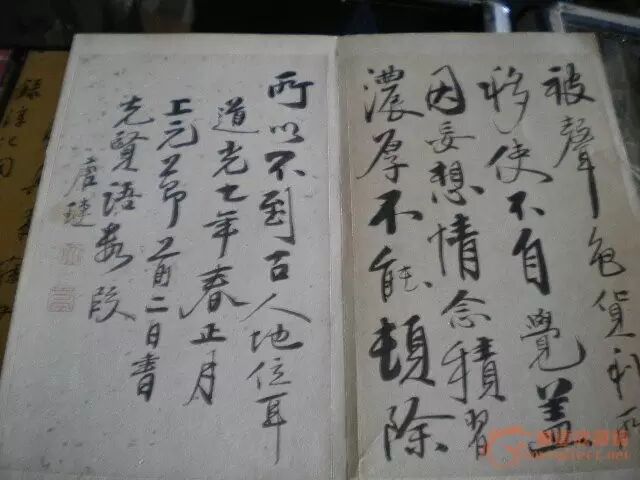 被聲色貨利所
移使不自覺蓋
因妄想情念積習
濃厚不能頓除
所以不到古人地位耳
道光七年春正月
上元之節前二日書
先賢語數段
唐璉